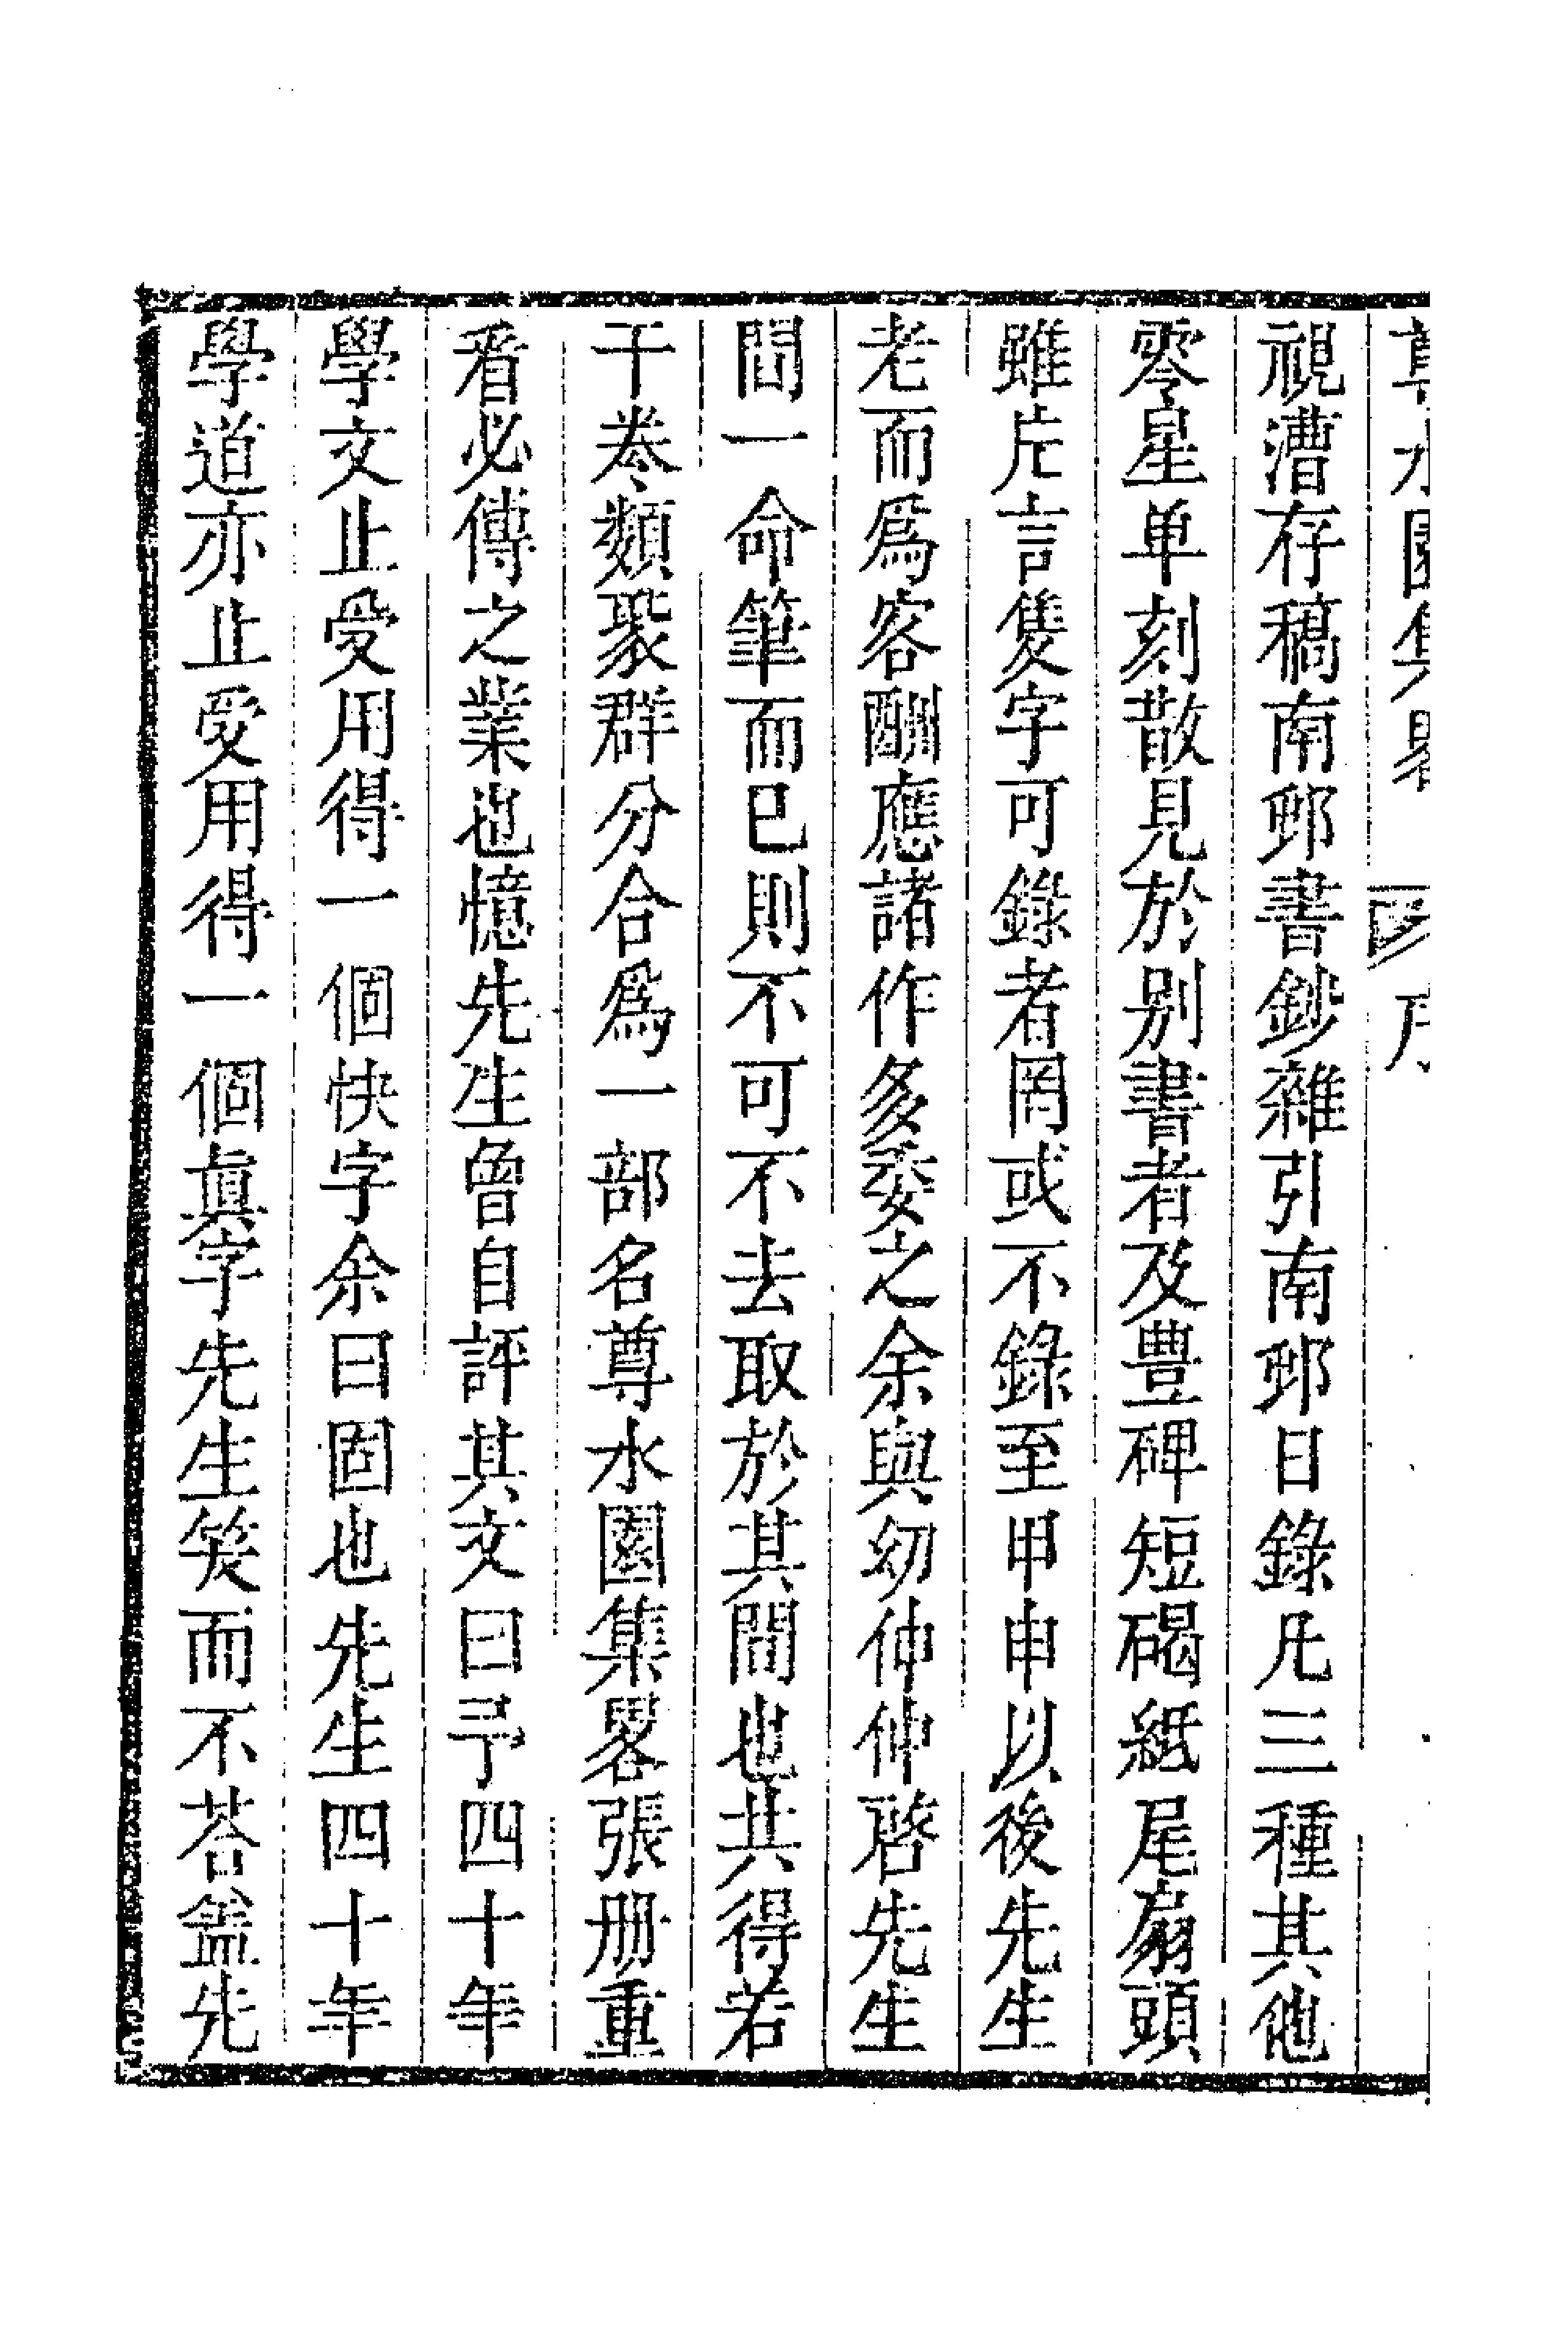 尊水園集畧 序
視漕存稿南邨書鈔雜引南邨日錄凡三種其他
零星单刻散見於别書者及豊碑短碣紙尾扇頭
雖片言隻字可錄者罔或不錄至甲申以後先生
老而爲客酬應諸作多委之余與幼仲仲啓先生
間一命筆而已則不可不去取於其間也共得若
干卷類聚群分合爲一部名尊水園集畧張册重
看必傳之業也憶先生曾自評其文曰予四十年
學文止受用得一個快字余曰固也先生四十年
學道亦止受用得一個真字先生笑而不荅盖先